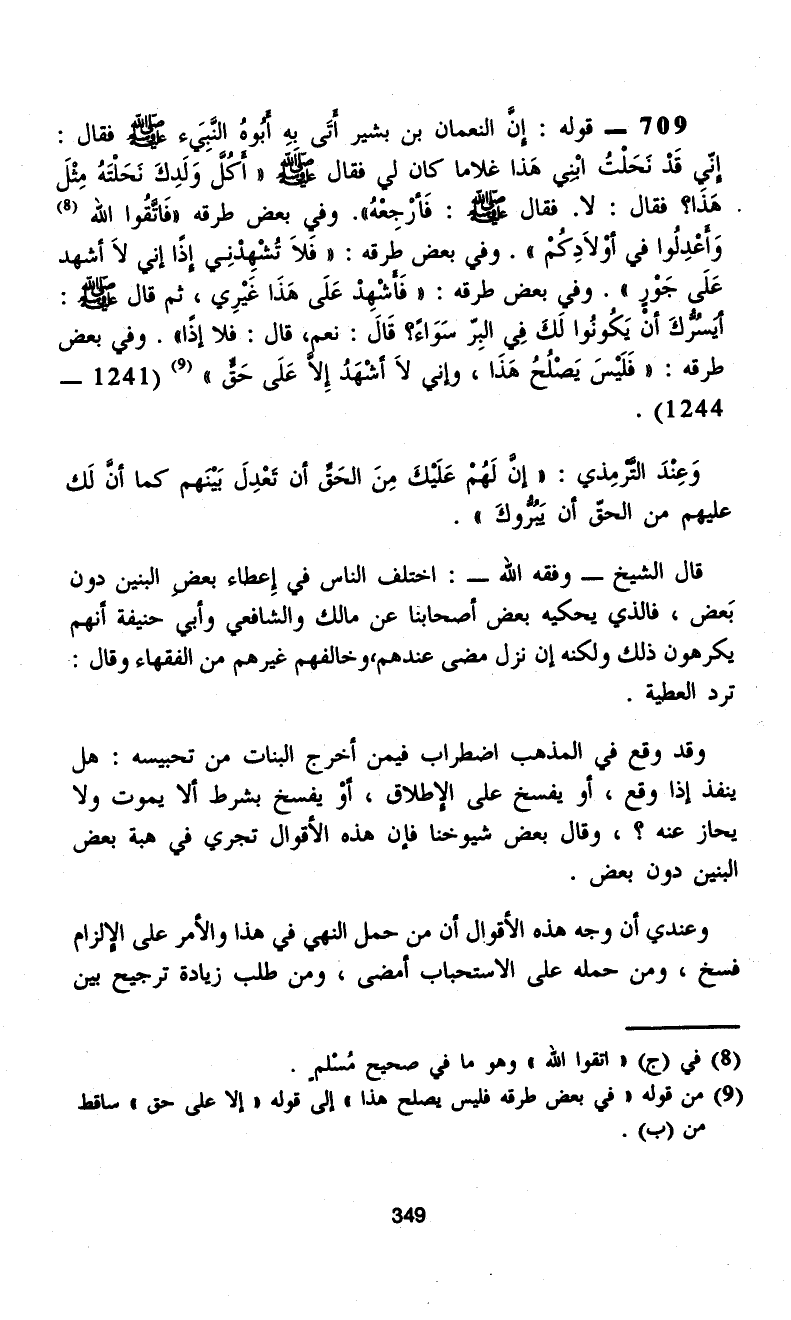 709 — قوله : إِنَّ النعمان بن بشير أَتَى بِهِ أَبُوهُ النَّبِيَء ﷺ فقال :
إِنّي قَدْ نَحَلْتُ ابْنِي هَذا غلاما كان لي فقال ﷺ « أَكُلَّ وَلَدِكَ نَحَلْتَهُ مِثْلَ
هَذَا؟ فقال : لا. فقال ﷺ : فَأَرْجِعْهُ». وفي بعض طرقه «فَاتَّقُوا الله (8)
وَأَعْدِلُوا في أوْلاَدِكُمْ » . وفي بعض طرقه : « فَلاَ تُشْهِدْنِي إِذًا إني لاَ أشهد
عَلَى جَوْرٍ » . وفي بعض طرقه : « فَأَشْهِدْ عَلَى هَذَا غَيْرِي ، ثم قال ﷺ :
أيَسُرُّكَ أنْ يَكُونُوا لَكَ فِي البِرّ سَوَاءً؟ قَالَ : نعم، قال : فلا إذًا» . وفي بعض
طرقه : « فَلَيْسَ يَصْلُحُ هَذَا ، وإني لاَ أشْهَدُ إِلاَّ عَلَى حَقٍّ » (9) (1241 —
1244) .
وَعِنْدَ التِّرمِذي : « إنَّ لَهُمْ عَلَيْكَ مِنَ الحَقِّ أن تَعْدِلَ بَيْنَهم كما أنَّ لَك
عليهم من الحقّ أن يَبَرُّوكَ » .
قال الشيخ — وفقه الله — : اختلف الناس في إعطاء بعضِ البنين دون
بَعض ، فالذي يحكيه بعض أصحابنا عن مالك والشافعي وأبي حنيفة أنهم
يكرهون ذلك ولكنه إن نزل مضى عندهم،وخالفهم غيرهم من الفقهاء وقال :
ترد العطية .
وقد وقع في المذهب اضطراب فيمن أخرج البنات من تحبيسه : هل
ينفذ إذا وقع ، أو يفسخ على الإطلاق ، أوْ يفسخ بشرط ألا يموت ولا
يحاز عنه ؟ ، وقال بعض شيوخنا فإن هذه الأقوال تجري في هبة بعض
البنين دون بعض .
وعندي أن وجه هذه الأقوال أن من حمل النهي في هذا والأمر على الإلزام
فسخ ، ومن حمله على الاستحباب أمضى ، ومن طلب زيادة ترجيح بين
(8) في (ج) « اتقوا الله » وهو ما في صحيح مُسْلم .
(9) من قوله « في بعض طرقه فليس يصلح هذا » إلى قوله « إلا على حق » ساقط
من (ب) .
349